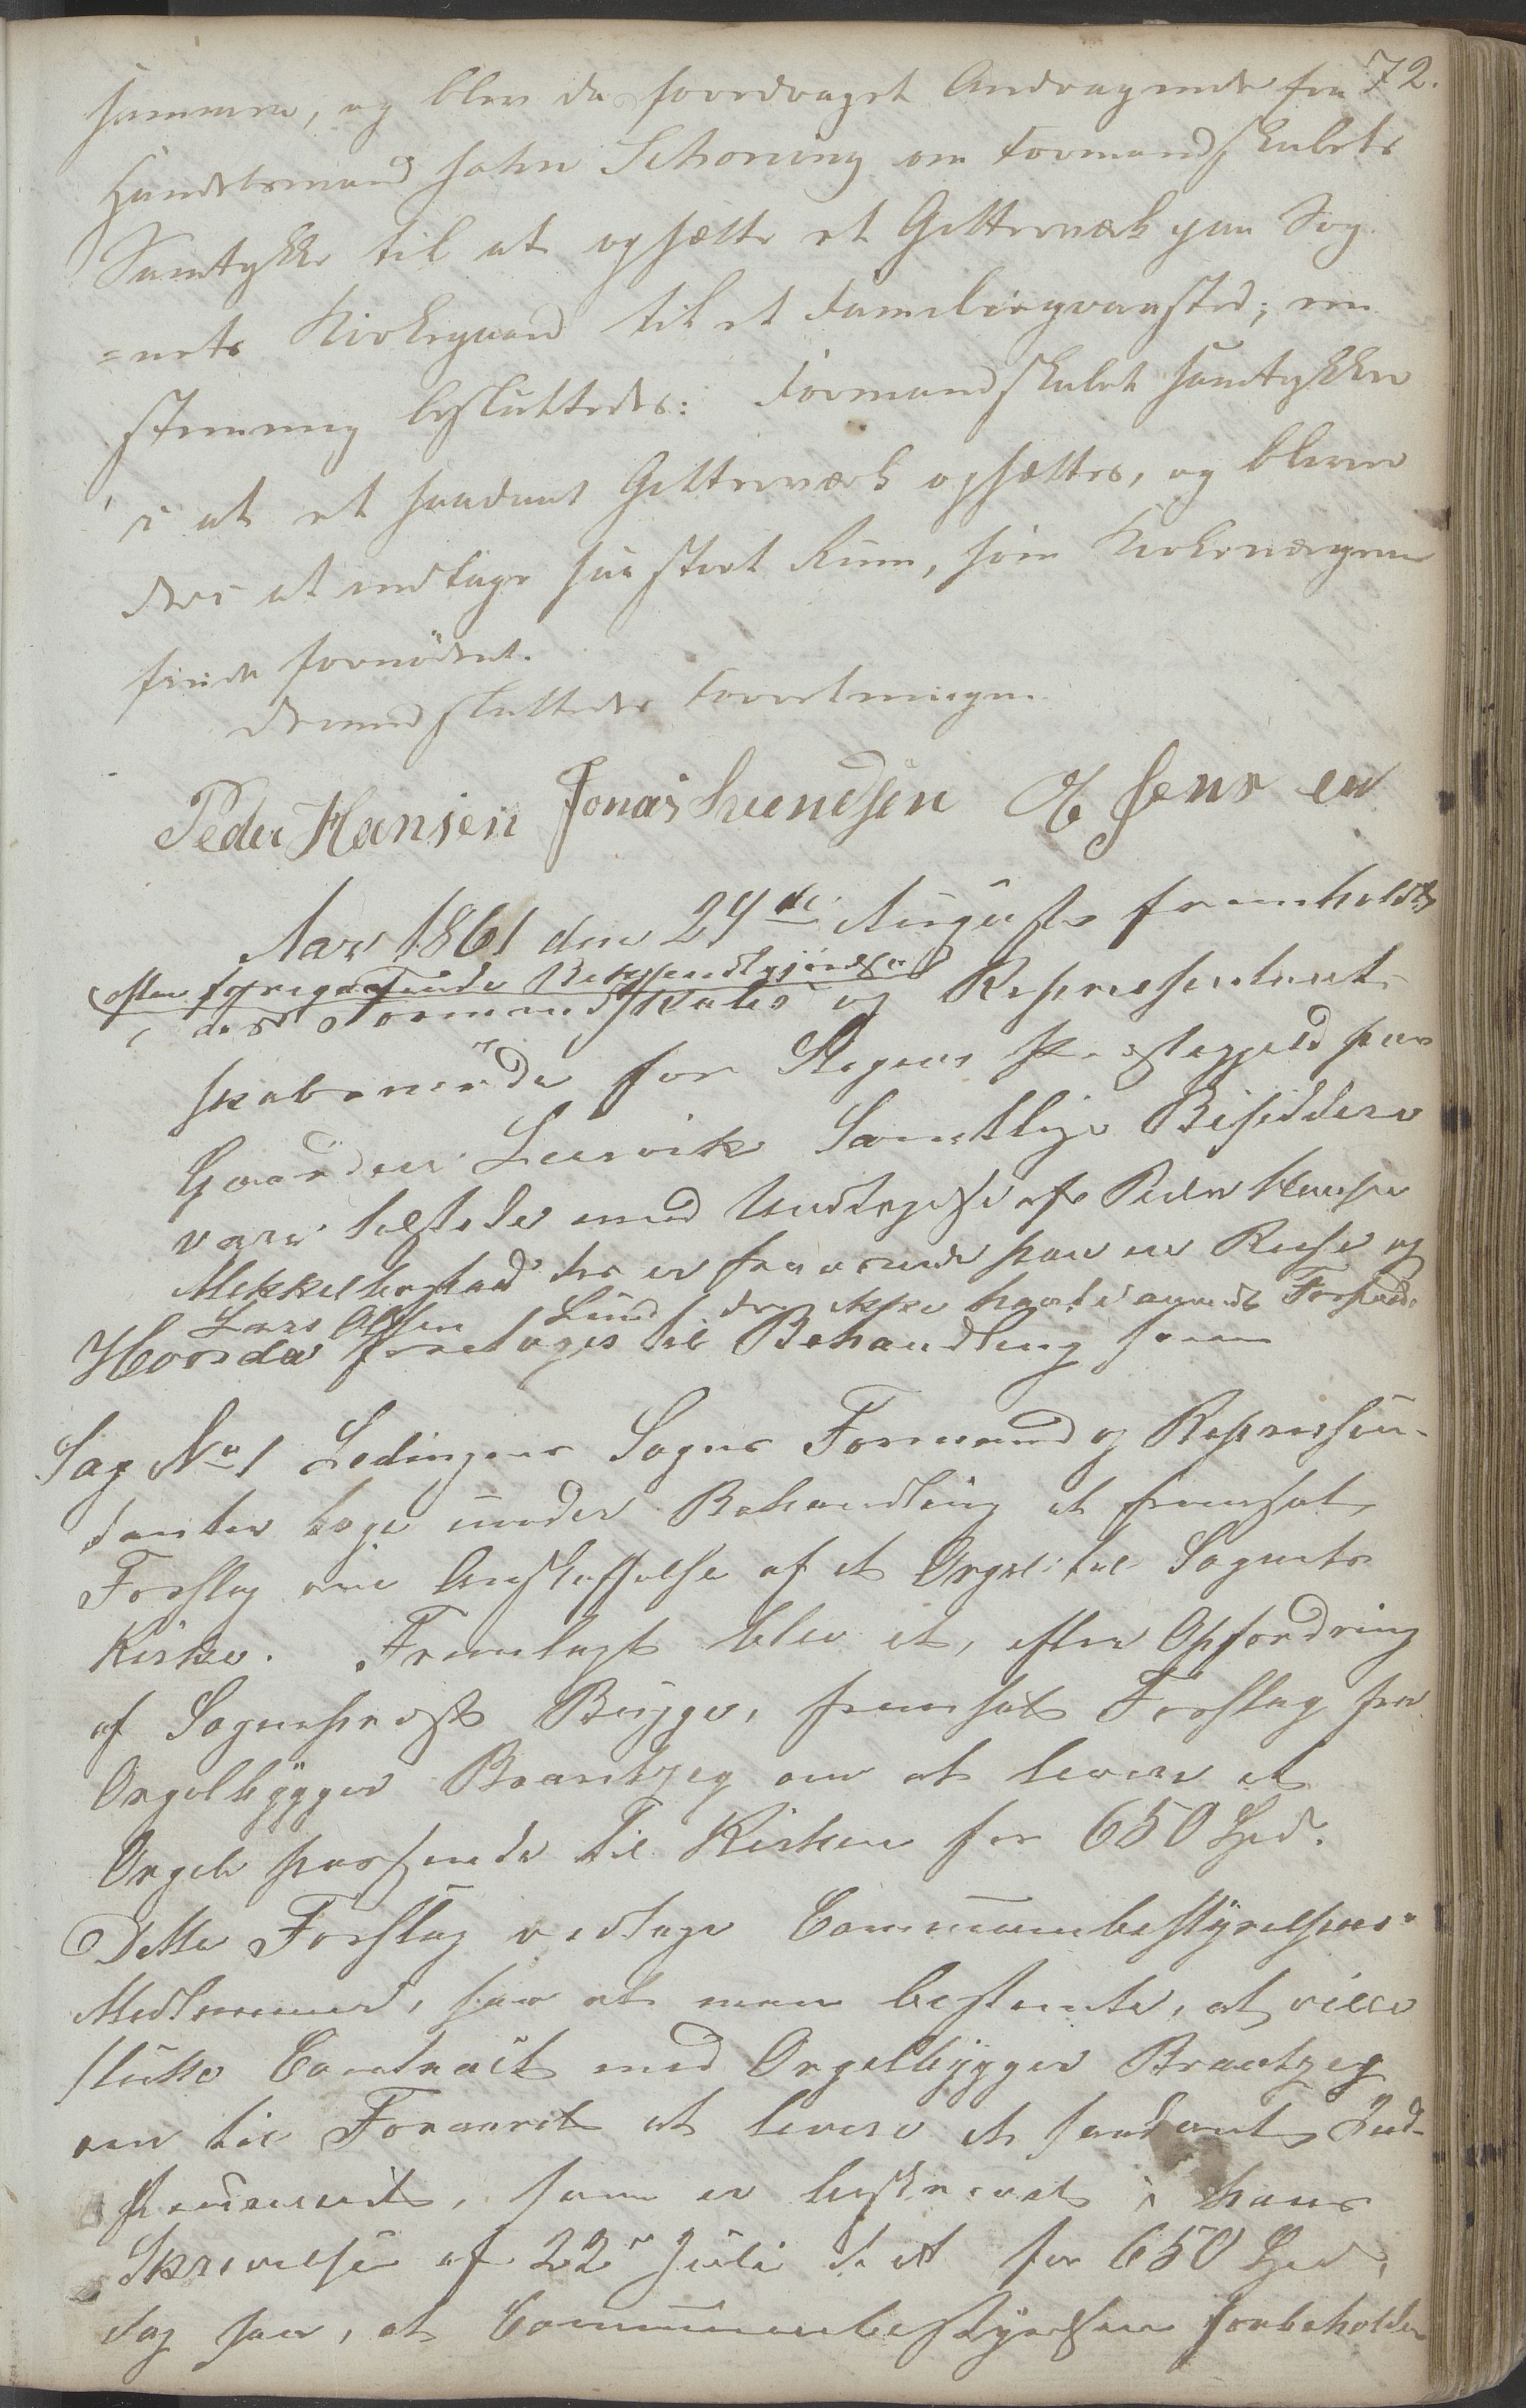 72.
sammen, og blev da foredraget Andragende fra
Handelsmand John Schoning om Formandskabets
Samtykke til at opsætte et Gitterværk paa Sog
=nets Kirkegaard til et Familiegravsted; een
stemmig besluttedes: Formandskabet samtykker
i at et saadant Gitterværk opsættes, og bliver
der at indtage saa stort Rum, som Kirkeværgerne
finde fornödent.
Dermed sluttedes Forretningen
Peder Hansen Jonas Svendsen O Jensen
Aar 1861 den 24de August fremholdtes
(efter foregaaende Bekjendtgjørelse)
des Formandskabs og Repræsentant
skabsmøde for Præstegjeld paa
Gaarden Leervik Samtlige Besiddere
vare tilstede med Undtagelse af Peder Hansen
der er fraværende paa en Reise og
Lars Olsen Lund der ikke havde anmeldt Forfald.
Hvorda foretoges til Behandling som
Sag No 1 Lødingens Sogns Formænd og Repræsen-
tanter toge under Behandling et fremsat
Forslag om Anskaffelse af et Orgel til Sognets
Kirke. Fremlagt blev et, efter Opfordring
af Sognepræst Bugge, fremsat Forslag fra
Orgelbygger Brantzeg om at levere et
Orgel passende til Kirken for 650 Spd.
Dette Forslag vedtoge Communebestyrelsens
Medlemmer, saa at man bestemte, at ville
slutte Contract med Orgelbygger Brantzeg
om til Foraaret at levere et saadant Ind-
strument, som er beskrevet i hans
Skrivelse af 22de Juli d. A for 650 Spd,
dog saa, at Communebestyrelsen forbeholder